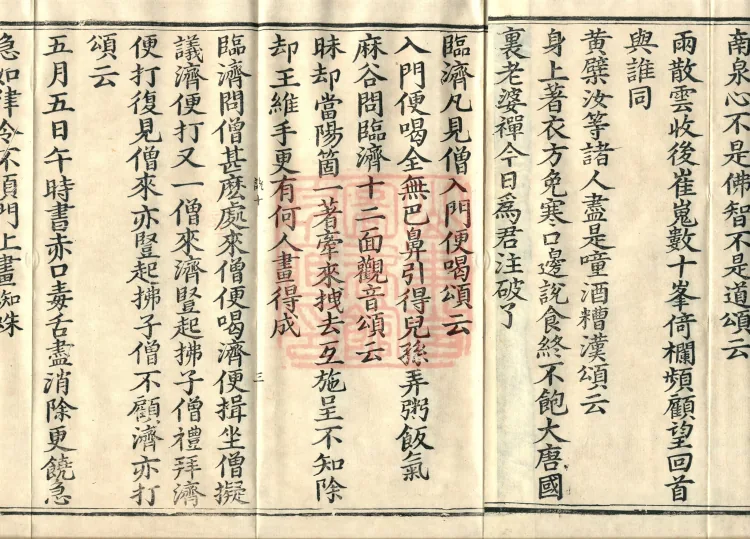 南泉心不是佛智不是道頌云
雨散雲收後崔嵬數十峯倚欄頻顧望回首
與誰同
黃檗汝等諸人盡是噇酒糟漢頌云
身上著衣方免寒口邊說食終不飽大唐國
裏老婆禪今日爲君注破了
臨濟凡見僧入門便喝頌云
入門便喝全無巴鼻引得兒孫弄粥飯氣
麻谷問臨濟十二面觀音頌云
昧却當陽箇一著牽來拽去互施呈不知除
却王維手更有何人畫得成
三
臨濟問僧甚麽處來僧便喝濟便揖坐僧擬
議濟便打又一僧來濟豎起拂子僧禮拜濟
便打復見僧來亦豎起拂子僧不顧濟亦打
頌云
五月五日午時書赤口毒舌盡消除更饒急
急如律令不須門上畫蜘蛛